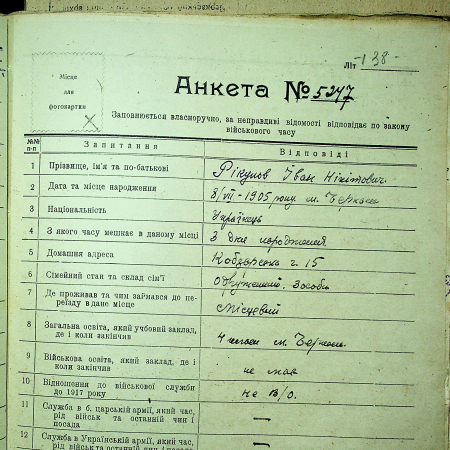 Літ -138-
Место
для
фотокартки
Анкета № 5247
Заповнюється власноручно, за неправдиві відомості відповідає по закону
військового часу
№№ п-п Запитання Відповіді
1 Прізвище, ім'я та по-батькові Рікунов Іван Нікітович
2 Дата та місце народження 8/VII-1905 року м. Черкаси
3 Національність Українець
4 З якого часу мешкає в даному місці З дня народження
5 Домашня адреса Кобзарська ч. 15
6 Сімейний стан та склад сім'ї Одружений.
7 Де проживав та чим займався до пе-
реїзду в дане місце Місцевий
8 Загальна освіта, який учбовий заклад,
де і коли закінчив 4 класи м. Черкаси
9 Військова освіта, який заклад, де і
коли закінчив не мав
10 Відношення до військової служби
до 1917 року не в/о.
11 Служба в б. царській армії, який час,
рід військ та останній чин і
посада —
12 Служба в Українській армії, який час,
рід військ та останній чин і посада —